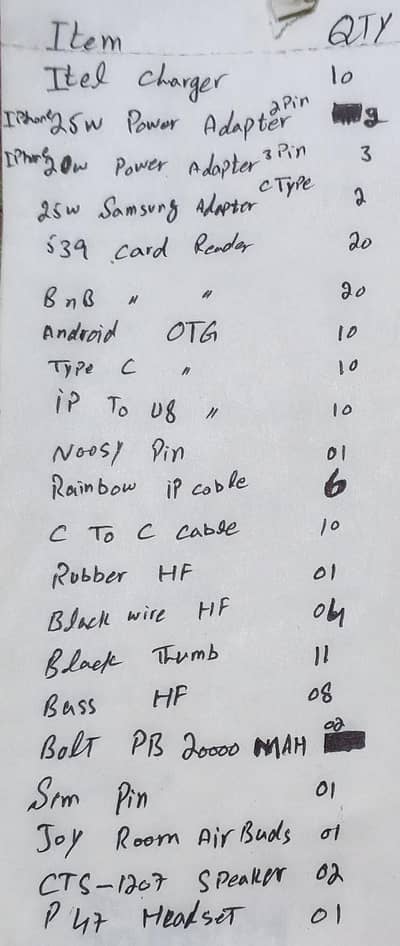 Item QTY
Itel Charger 10
IPhone 25W Power Adapter 2Pin 2
IPhone 20W Power Adapter 3Pin 3
25W Samsung Adapter C Type 2
S39 Card Reader 20
BnB " " 20
Android OTG 10
Type C " 10
iP To U8 " 10
Noosy Pin 01
Rainbow iP cable 6
C To C Cable 10
Rubber HF 01
Black wire HF 04
Black Thumb 11
Bass HF 08
Bolt PB 20000 MAH 02
Sim Pin 01
Joy Room Air Buds 01
CTS-1207 Speaker 02
P47 Headset 01